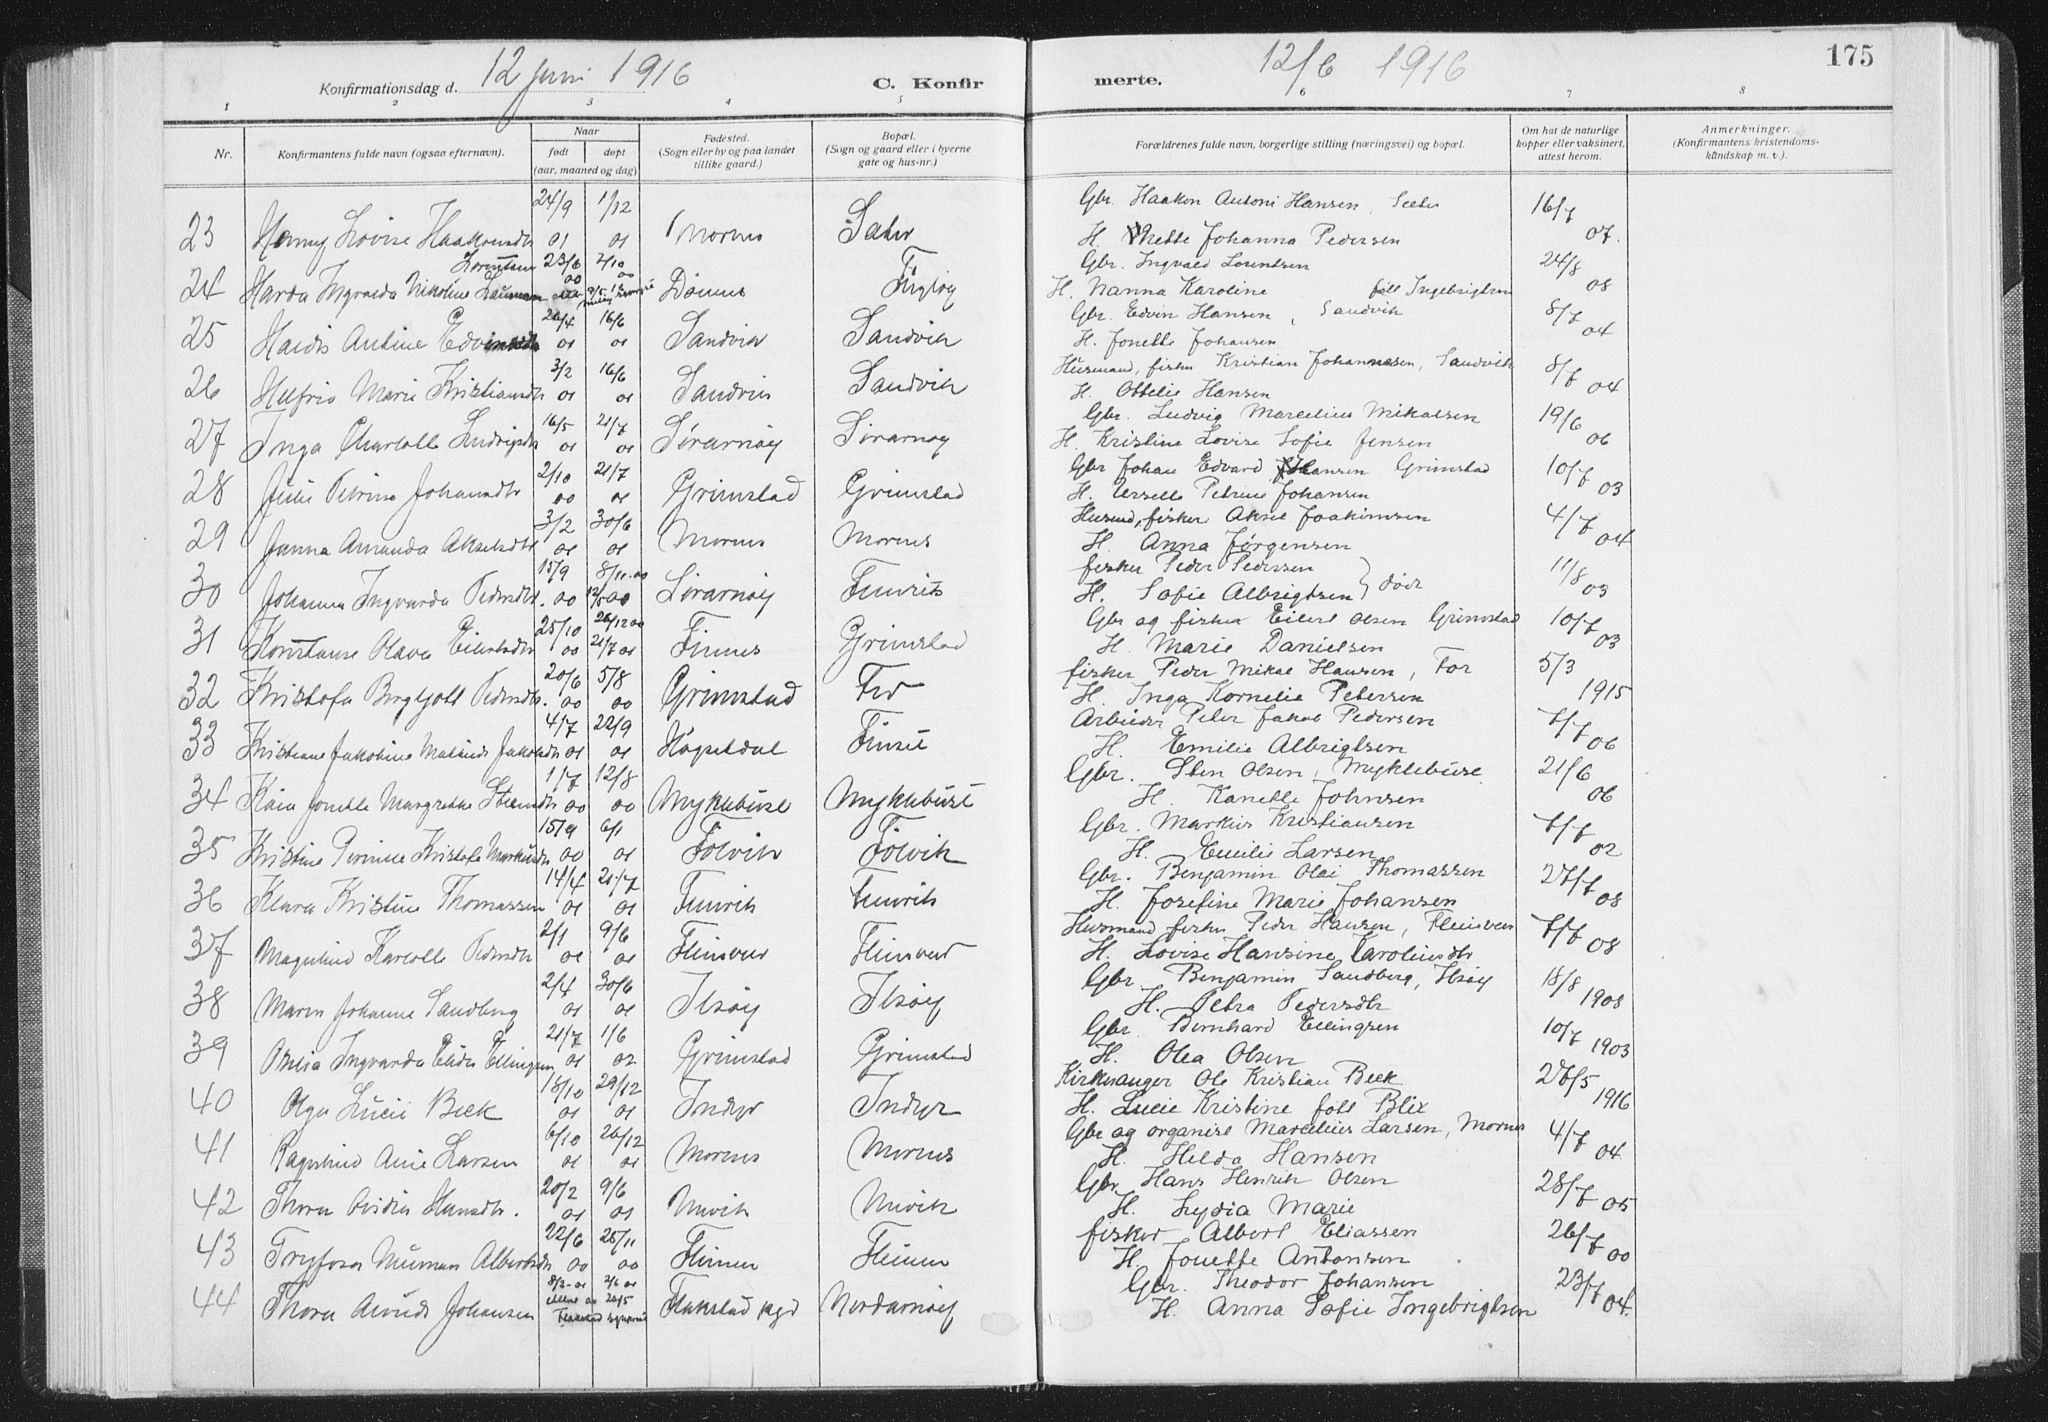 Konfirmationsdag d. 12 juni 1916
C. Konfir
merte.
12/6 1916
175
1 2 3 4 5 6 7 8
Nr.
Konfirmantens fulde navn (ogsaa efternavn).
Naar
født
døpt
(aar, maaned og dag)
Fødested.
(Sogn eller by og paa landet
tillike gaard.)
Bopæl.
(Sogn og gaard eller i byerne
gate og hus-nr.)
Forældrenes fulde navn, borgerlige stilling (næringsvei) og bopæl.
Om hat de naturlige
kopper eller vaksinert,
attest herom.
Anmerkninger.
(Konfirmantens kristendoms-
kundskap m. v.).
24/9 1/12 Gbr. Haakon Antoni Hansen, Seter 16/7
23 Lovise Haakonsdtr 01 01 Mornes Sæter H. Mette Johanna Pedersen 07.
Lorentsen 23/6 7/10 Gbr. Ingvald Lorentsen 24/8
24 Harda Ingvalda Nikoline 00 00 Dønnes Fugløy H. Nanna Karoline født Ingebrigtsen 08
16/6 Gbr. Edvin Hansen, Sandvik 8/7
25 Haidis Antine 01 01 Sandvik Sandvik H. Jonette Johansen 04
3/2 16/6 Husmand, fisker Kristian Johannesen, Sandvik 8/7
26 Marie Kristiansdtr 01 01 Sandvik Sandvik H. Ottelie Hansen 04
16/5 21/7 Gbr. Ludvig Marcelius Mikalsen 19/6
27 Inga Charlotte Ludvigsdtr 01 01 Sørarnøy Sørarnøy H. Kristine Lovise Sofie Jensen 06
2/10 21/7 Gbr Johan Edvard Johansen Grimstad 10/7
28 Petrine Johansdtr 00 01 Grimstad Grimstad H. Petrine Johansen 03
3/2 30/6 Husmd, fisker Aksel Joakimsen 4/7
29 Janna Amanda Akselsdtr 01 01 Mornes Mornes H. Anna Jørgensen 04
15/9 8/11.00 fisker Peder Pedersen 11/8
30 Johanna Ingvarda Pedersdtr. 00 Sørarnøy Finvik H. Sofie Albrigtsen } død 03
25/10 26/12 00 Gbr og fisker Eilert Olsen Grimstad 10/7
31 Konstanse Olava Eilertsdtr 00 21/7 01 Finnes Grimstad H. Marie Danielsen 03
20/6 5/8 fisker Peder Mikal Hansen, For 5/3
32 Kristofa Bergljott Pedersdtr. 00 00 Grimstad For H. Inga Kornelia Petersen 1915
4/7 22/9 Arbeider Peter Jakob Pedersen 7/7
33 Kristiane Jakobine Jakobsdtr 01 01 Høgsetdal Finset H. Emilie Albrigtsen 06
1/7 12/8 Gbr. Sten Olsen, Myklebust 21/6
34 Kaia Jonette Margrethe Stensdtr 00 00 Myklebust Myklebust H. Kanette Johnsen 06
15/9 6/1 Gbr. Markus Kristiansen 7/7
35 Kristine Kristofa Markusdtr 00 01 Følvik Følvik H. Emilie Larsen 02
14/4 21/7 Gbr. Benjamin Olai Thomassen 27/7
36 Klara Kristine Thomassen 01 01 Finvik Finvik H. Josefine Marie Johansen 08
2/1 9/6 Husmand fisker Peder Hansen, Fleinvær 7/7
37 Magnhild Karlotte Pedersdtr 01 01 Fleinvær Fleinvær H. Lovise Hansine Karoliusdtr 08
2/4 30/6 Gbr Benjamin Sandberg, Ilsøy 18/8
38 Maren Johanne Sandberg 01 01 Ilsøy Ilsøy H. Petra Pedersdtr 1908
21/7 1/6 Gbr Bernhard Ellingsen 10/7
39 Ingvarda Elida Ellingsen 01 02 Grimstad Grimstad H. Olea Olsen 1903
18/10 29/12 Kirkesanger Ole Kristian Beck 26/5
40 Olga Lucie Beck 01 01 Indyr Indyr H. Lucie Kristine født Blix 1916
6/10 26/12 Gbr og organist Marcelius Larsen, Mornes 4/7
41 Ragnhild Anie Larsen 01 01 Mornes Mornes H. Helda Hansen 04
20/2 9/6 Gbr Hans Henrik Olsen 28/7
42 Thora Hansdtr. 01 01 H. Lydia Marie 05
22/6 25/11 fisker Albert Eliassen 26/7
43 Tryfosa Albertsdtr 00 00 Fleinvær H. Jonette Antonsen 00
8/2-01 2/6 01 Gbr. Theodor Johansen 23/7
44 Thora Johansen Flakstad pgd Nordarnøy H. Anna Sofie Ingebrigtsen 04.